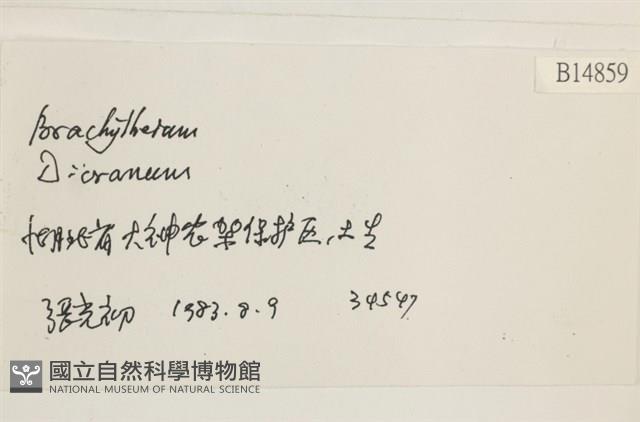 B14859
Brachytherum
Dicranum
湖北省大神农架保护区,土生
张光初 1983.8.9 34547
國立自然科學博物館
NATIONAL MUSEUM OF NATURAL SCIENCE